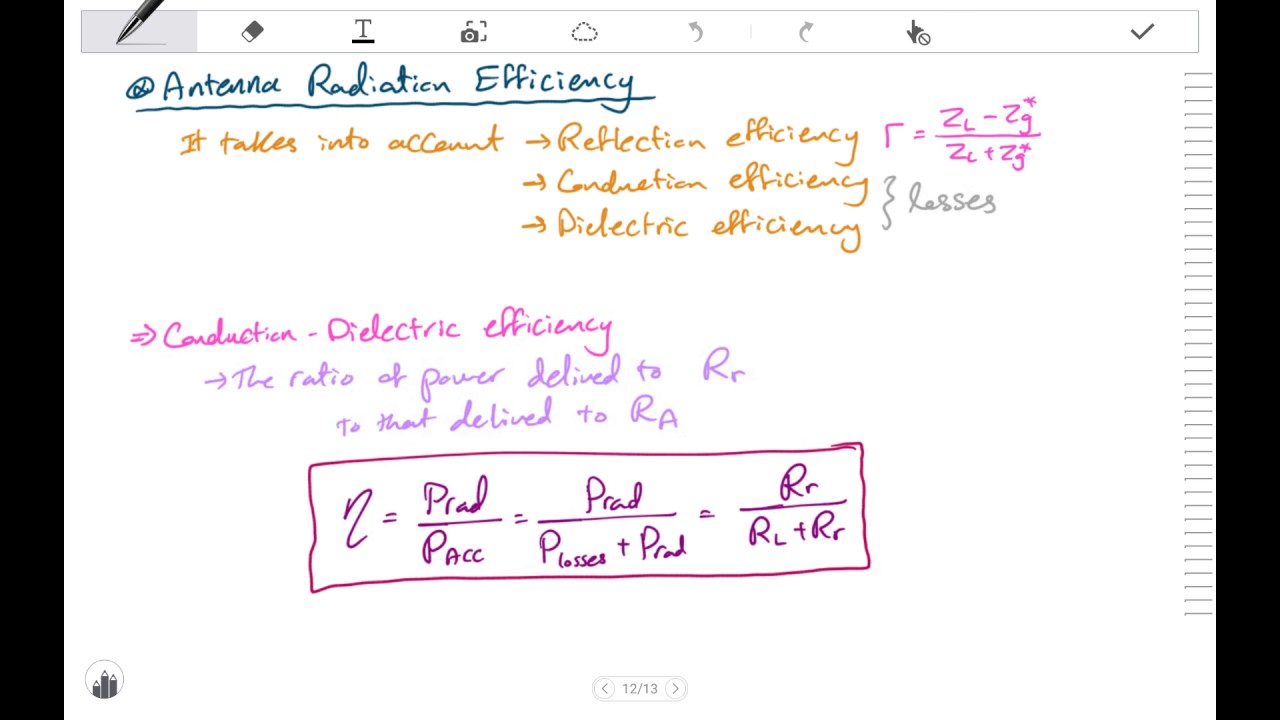 T
Antenna Radiation Efficiency
It takes into account → Reflection efficiency Γ = (Z_L - Z_g*) / (Z_L + Z_g*)
→ Conduction efficiency
→ Dielectric efficiency } losses
⇒ Conduction - Dielectric efficiency
→ The ratio of power delived to R_r
to that delived to R_A
η = P_rad / P_Acc = P_rad / (P_losses + P_rad) = R_r / (R_L + R_r)
12/13